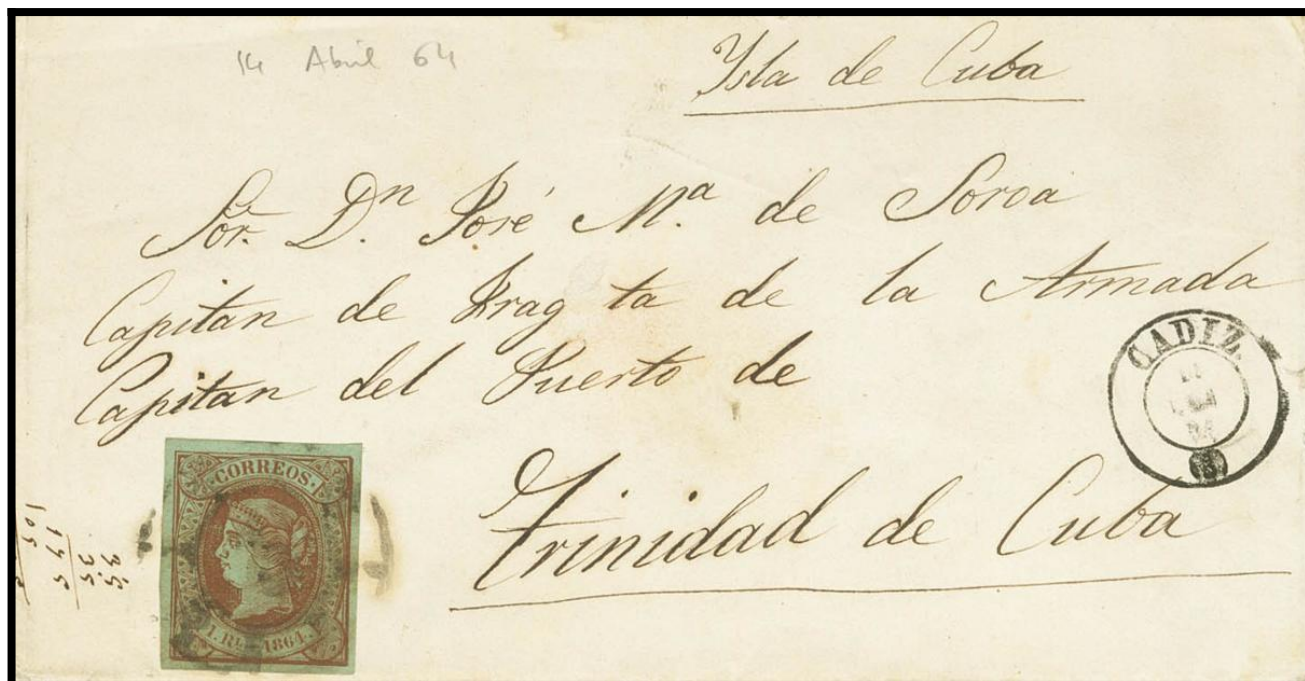 14 Abril 64
Ysla de Cuba
Sor. Dn. José Ma. de Soroa
Capitan de Frag ta de la Armada
Capitan del Puerto de
Trinidad de Cuba
CADIZ.
CORREOS
1. RL. 1864.